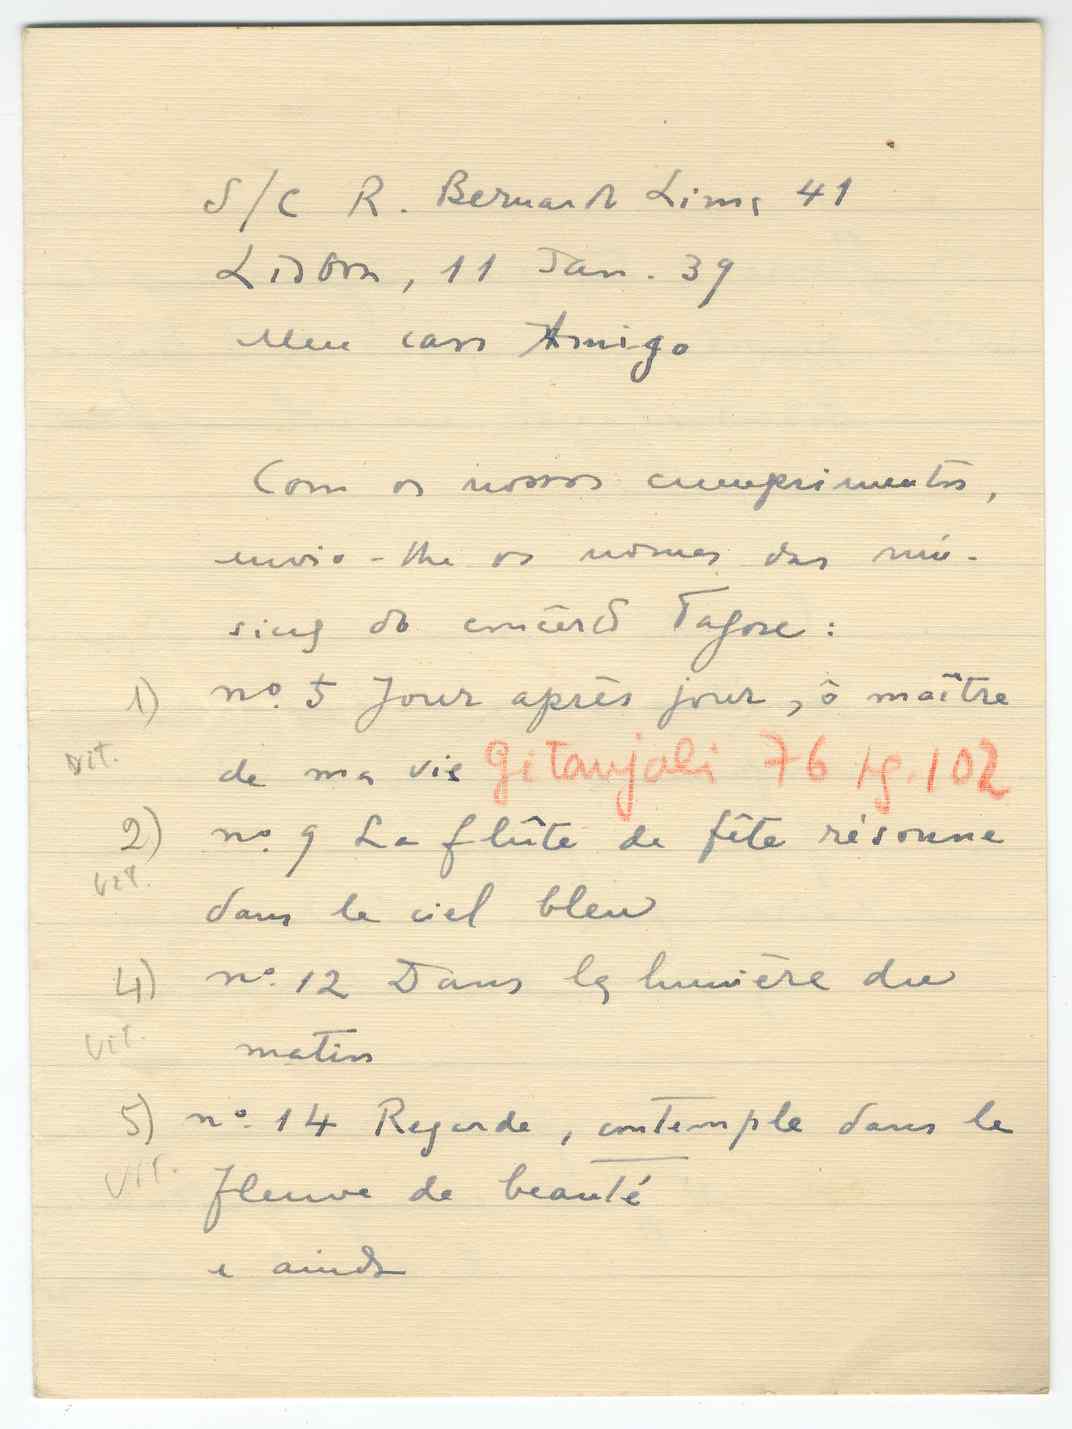 S/C R. Bernardo Lima 41
Lisboa, 11 Jan. 39
Meu caro Amigo
Com os nossos cumprimentos,
envio-lhe os nomes das mú-
sicas do concêrto Tagore:
1) nº. 5 Jour après jour, ô maître
Vit. de ma vie Gitanjali 76 pg. 102
2) nº. 9 La flûte de fête résonne
Vit. dans le ciel bleu
4) nº. 12 Dans la lumière du
Vit. matin
5) nº. 14 Regarde, contemple dans le
Vit. fleuve de beauté
e ainda